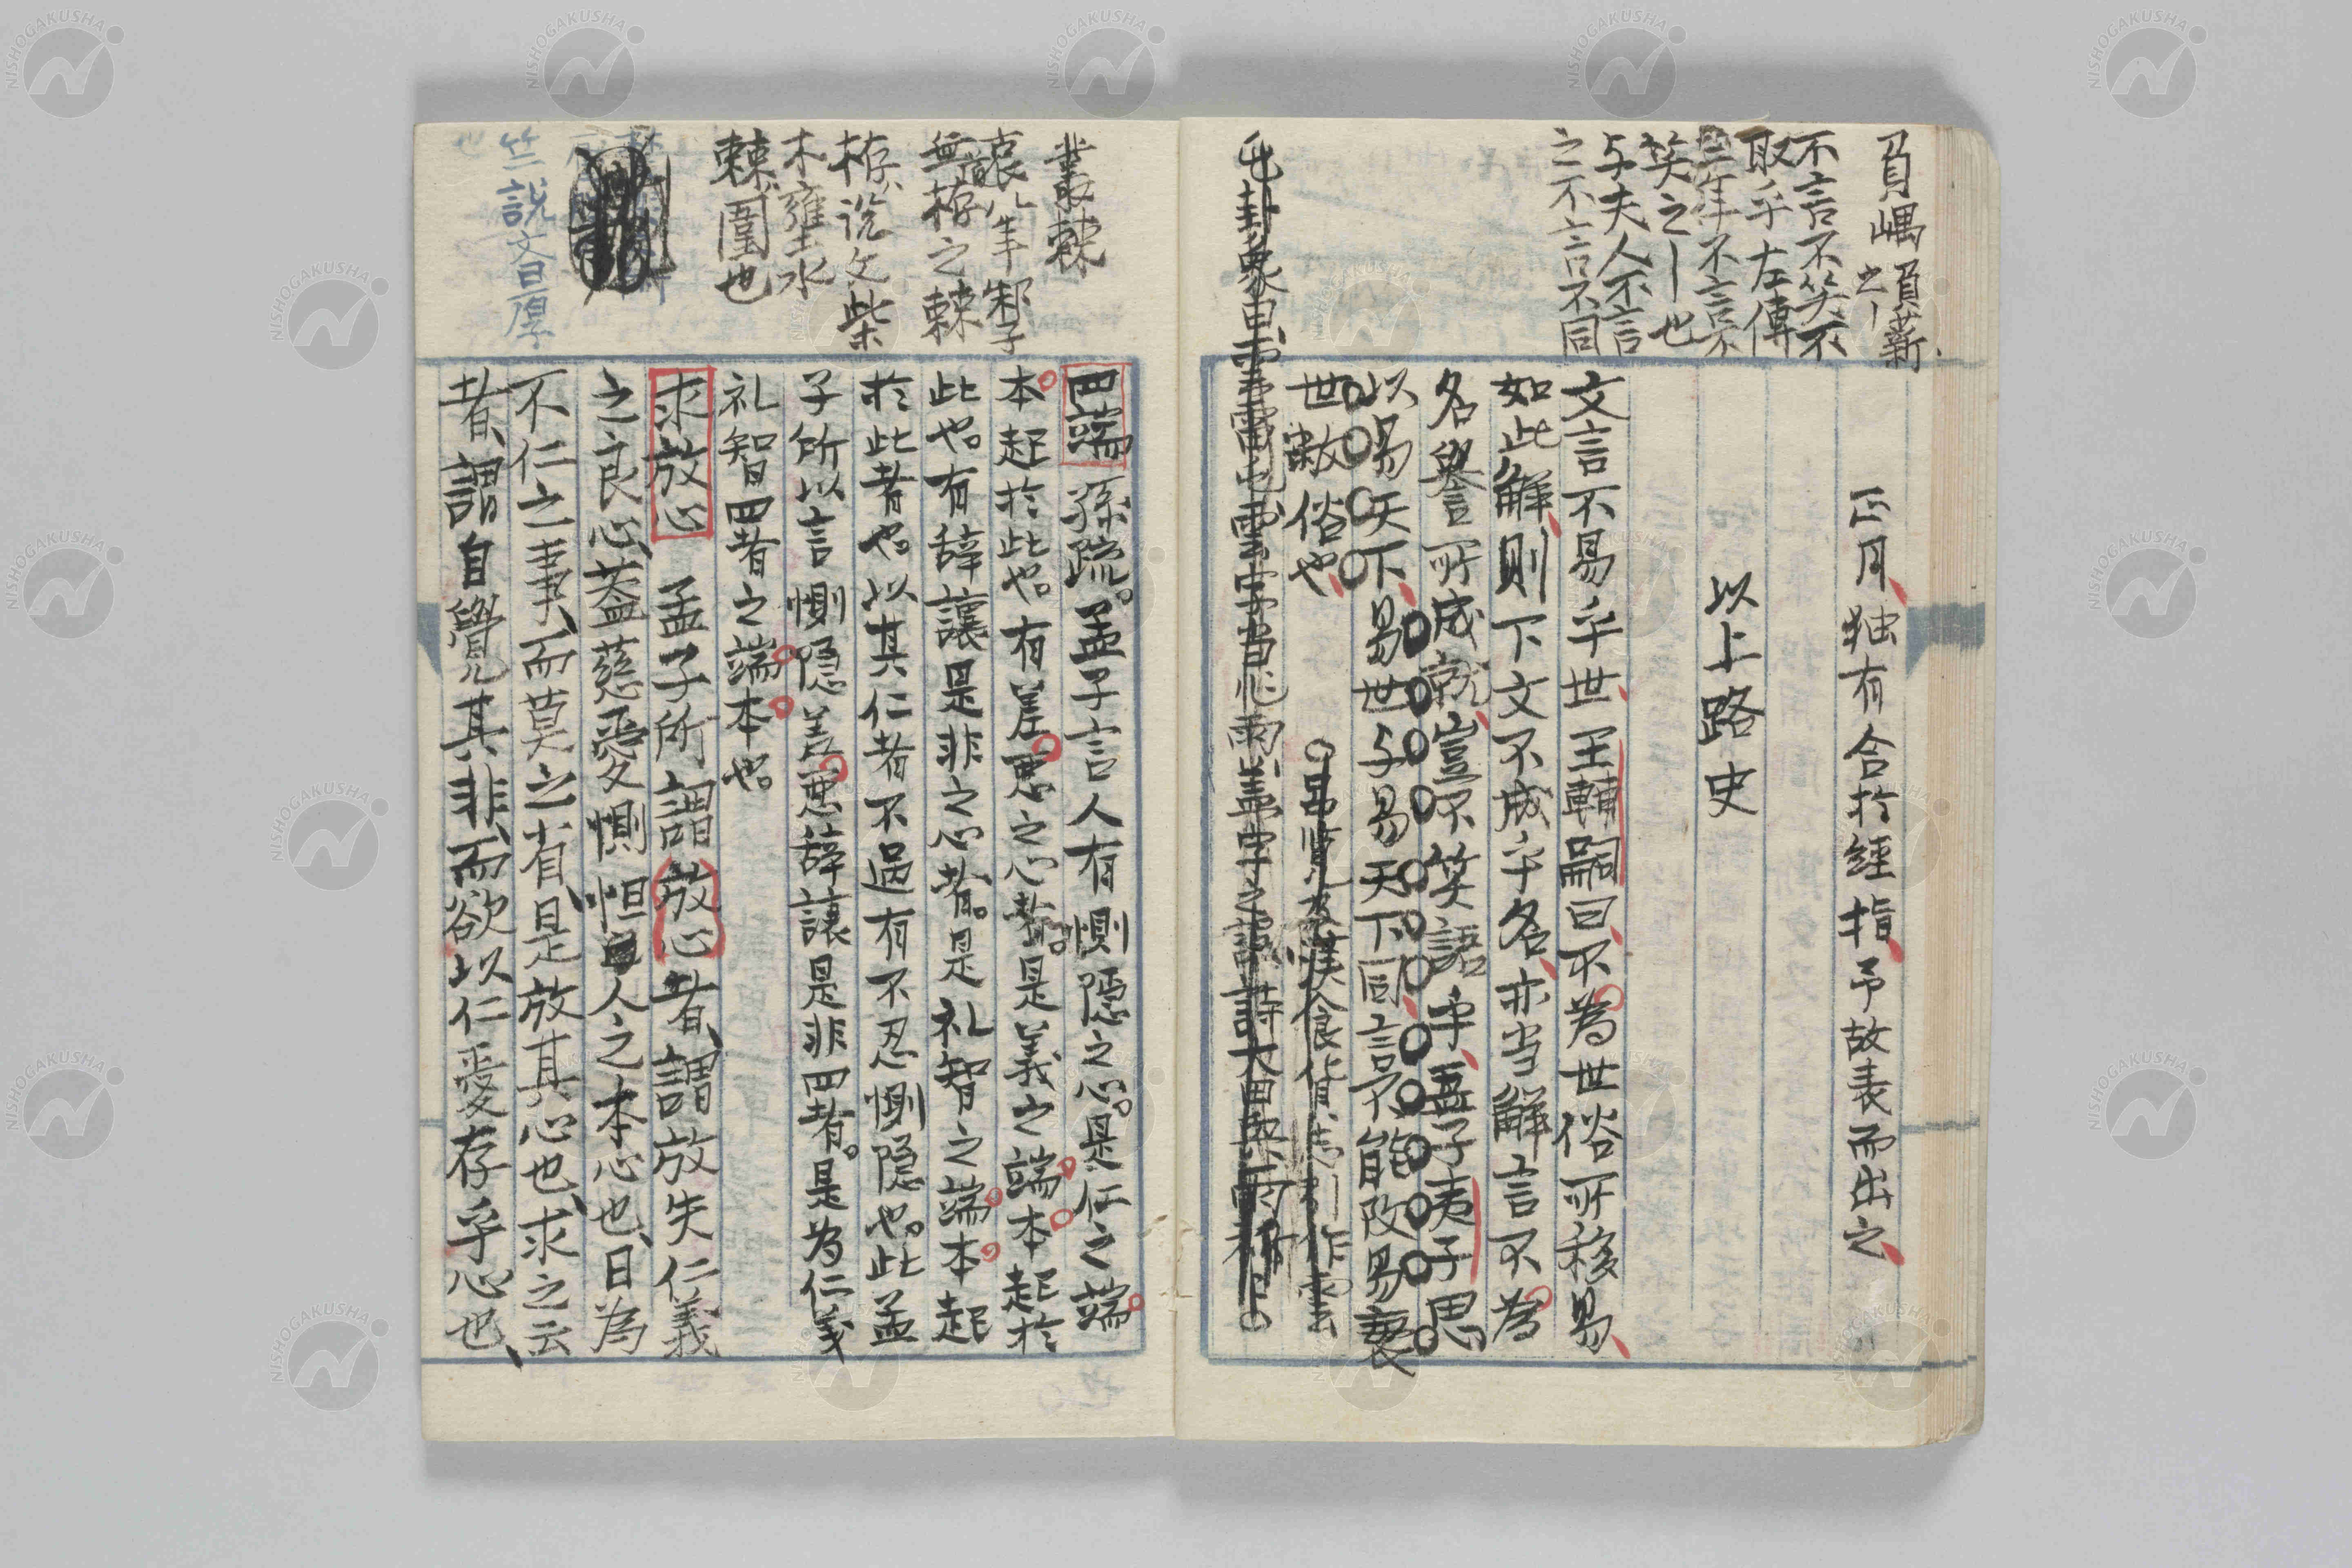 負嵎 負薪
之〡
不言不笑不
取乎左傳
三年不言不
笑之〡也
与夫人不言
之不言不同
正月、独有合於經指、予故表而出之、
以上路史
文言不易乎世、王輔嗣曰、不為世俗所移易、
如此解、則下文不成乎名、亦当解言不為
名譽所成就、豈不笑語乎、孟子夷子思
以易天下、易世与易天下同、言不能改易衰
世敝俗也、
叢棘
哀八年邾子
無道栫之棘
栫、说文柴
木壅土水
棘、圍也
竺説文曰厚
也
四端 孫疏。孟子言人有惻隠之心。是仁之端
本起於此也。有羞悪之心者。是義之端本起於
此也。有辞讓是非之心者。是礼智之端本起
於此者也。以其仁者不過有不忍惻隠也。此孟
子所以言惻隠羞悪辞讓是非四者。是為仁義
礼智四者之端本也
求放心 孟子所謂放心者、謂放失仁義
之良心、蓋慈愛惻怛人之本心也、日為
不仁之事、而莫之省、是放其心也、求之云
者、謂自覺其非、而欲以仁愛存乎心也、
NISHOGAKUSHA